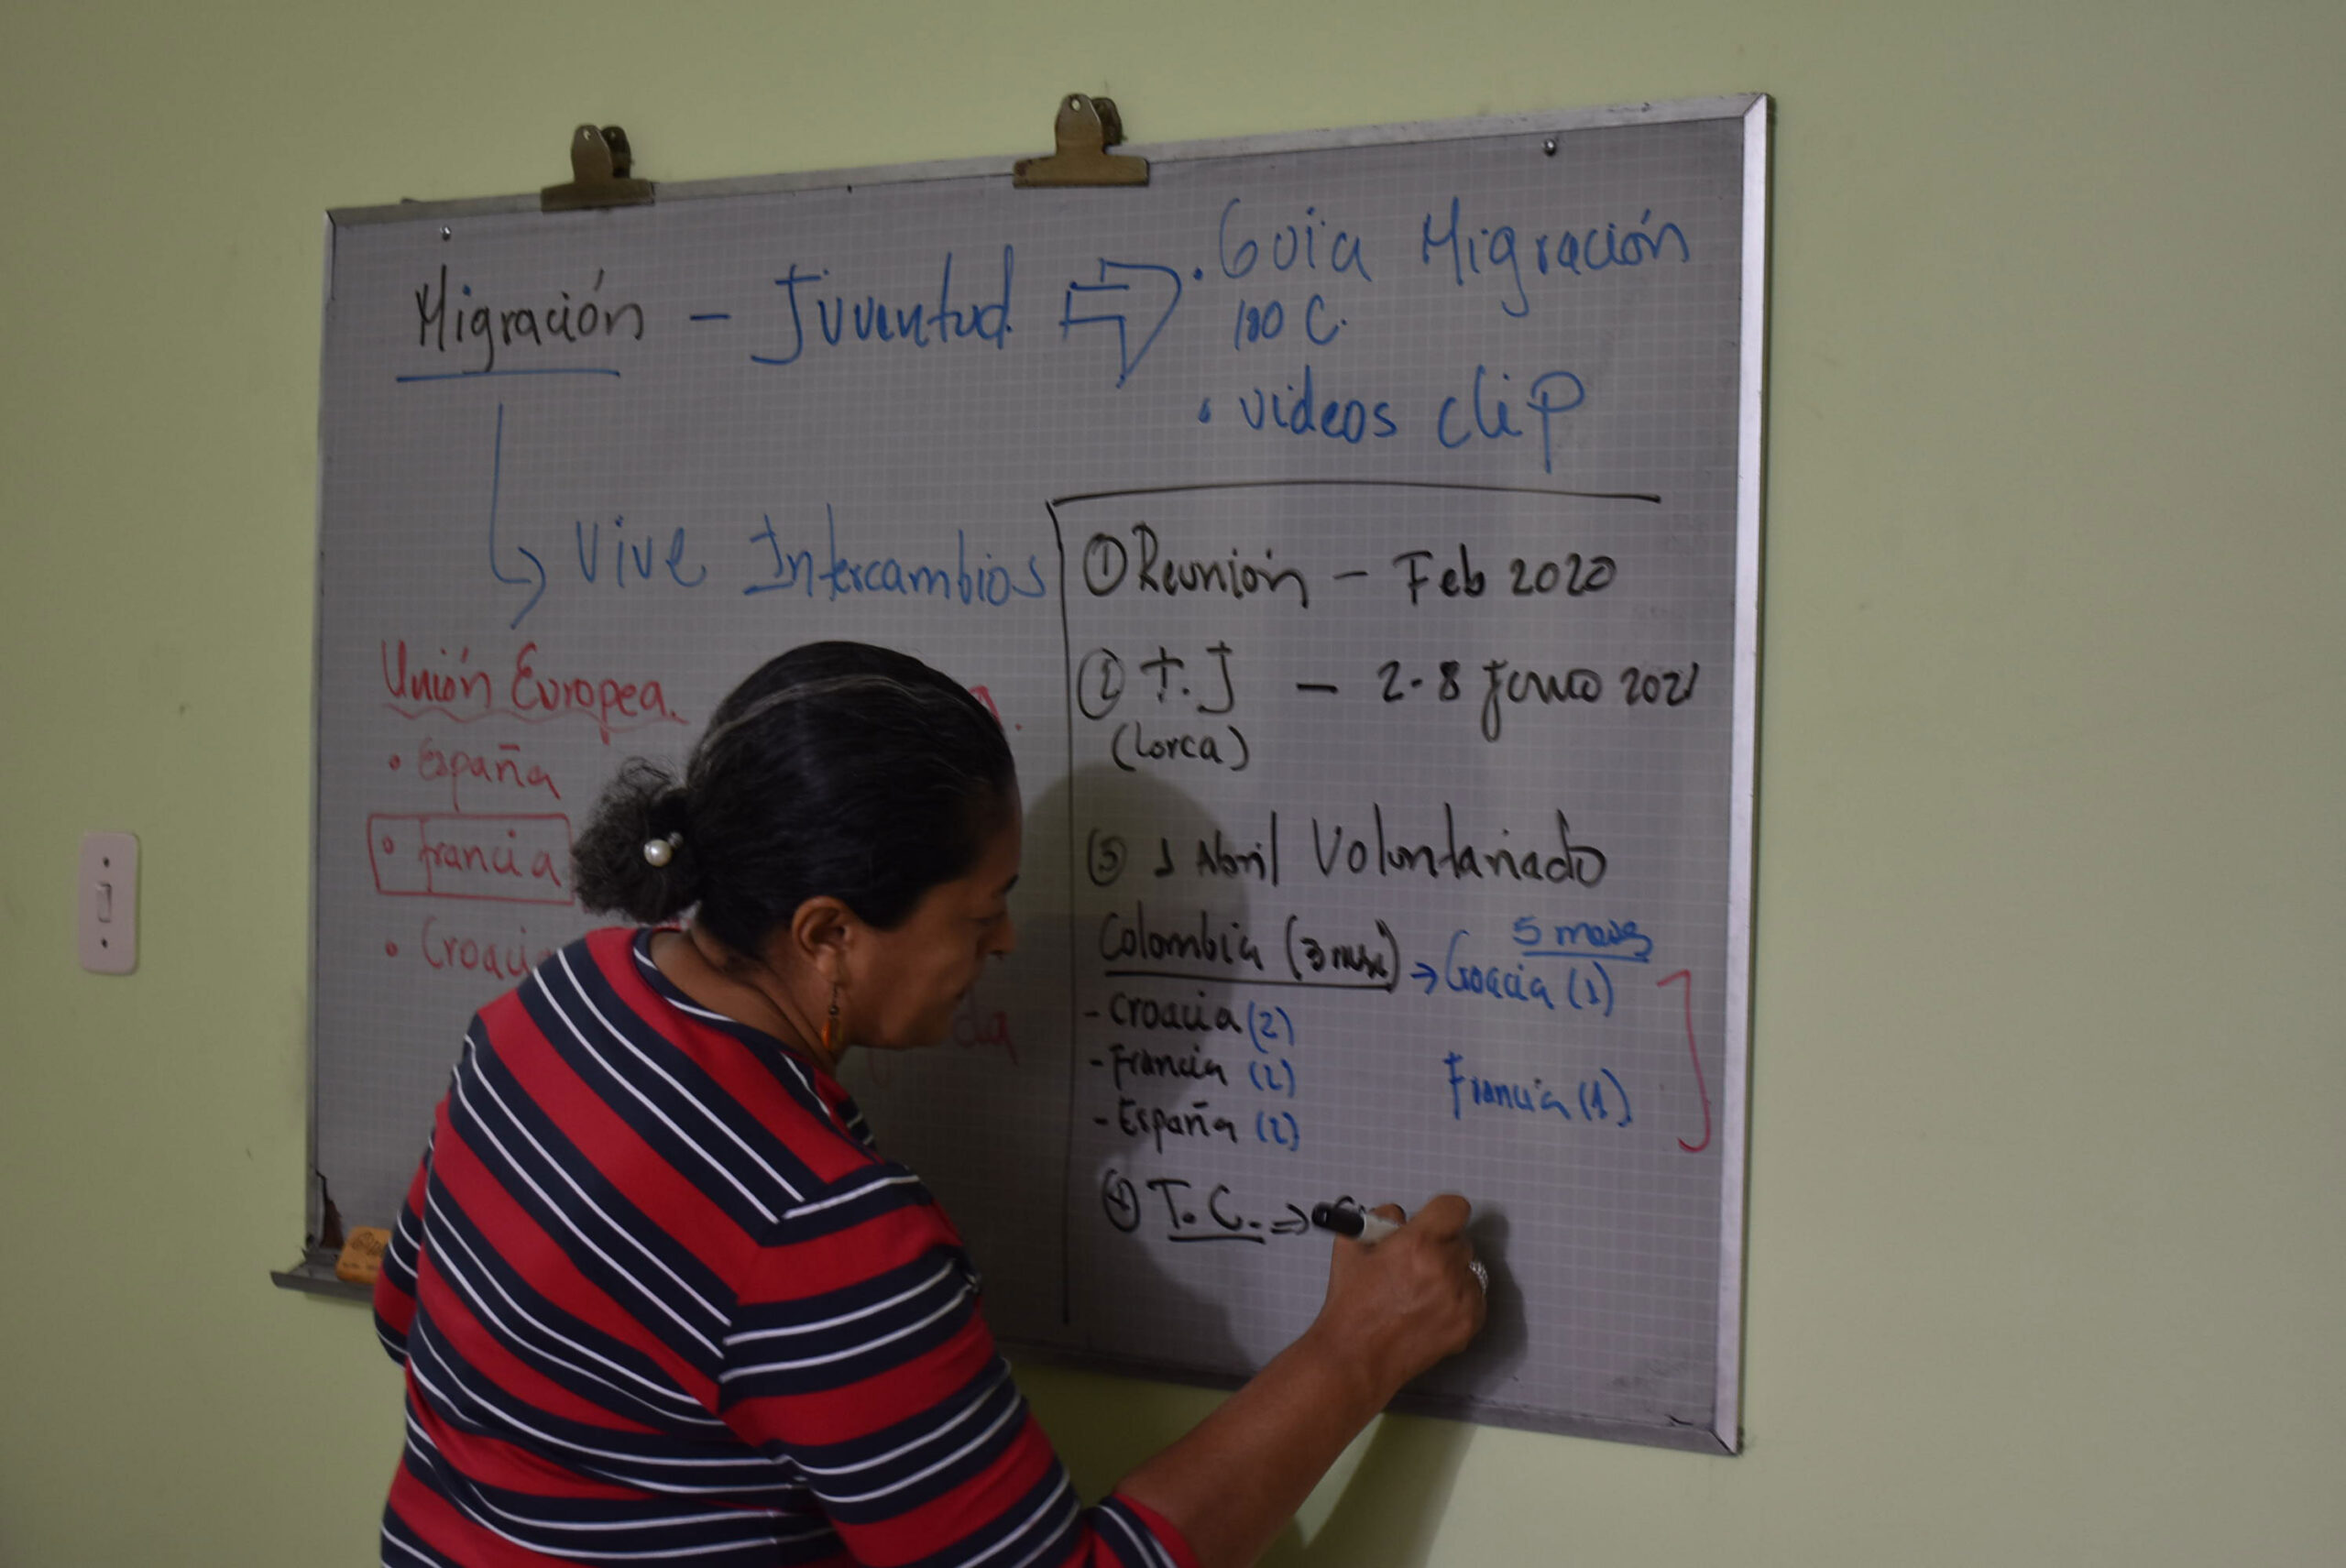 Migración - Juventud
. Guia Migración
100 C.
. videos clip
Vive Intercambios
Unión Europea.
• España
• francia
• Croacia
① Reunión - Feb 2020
② T.J - 2-8 Junio 2021
(Lorca)
③ 1 Abril Voluntariado
5 meses
Colombia (3 mese) → Croacia (1)
- Croacia (2)
- Francia (2)
Francia (1)
- España (2)
④ T. C. ⇒